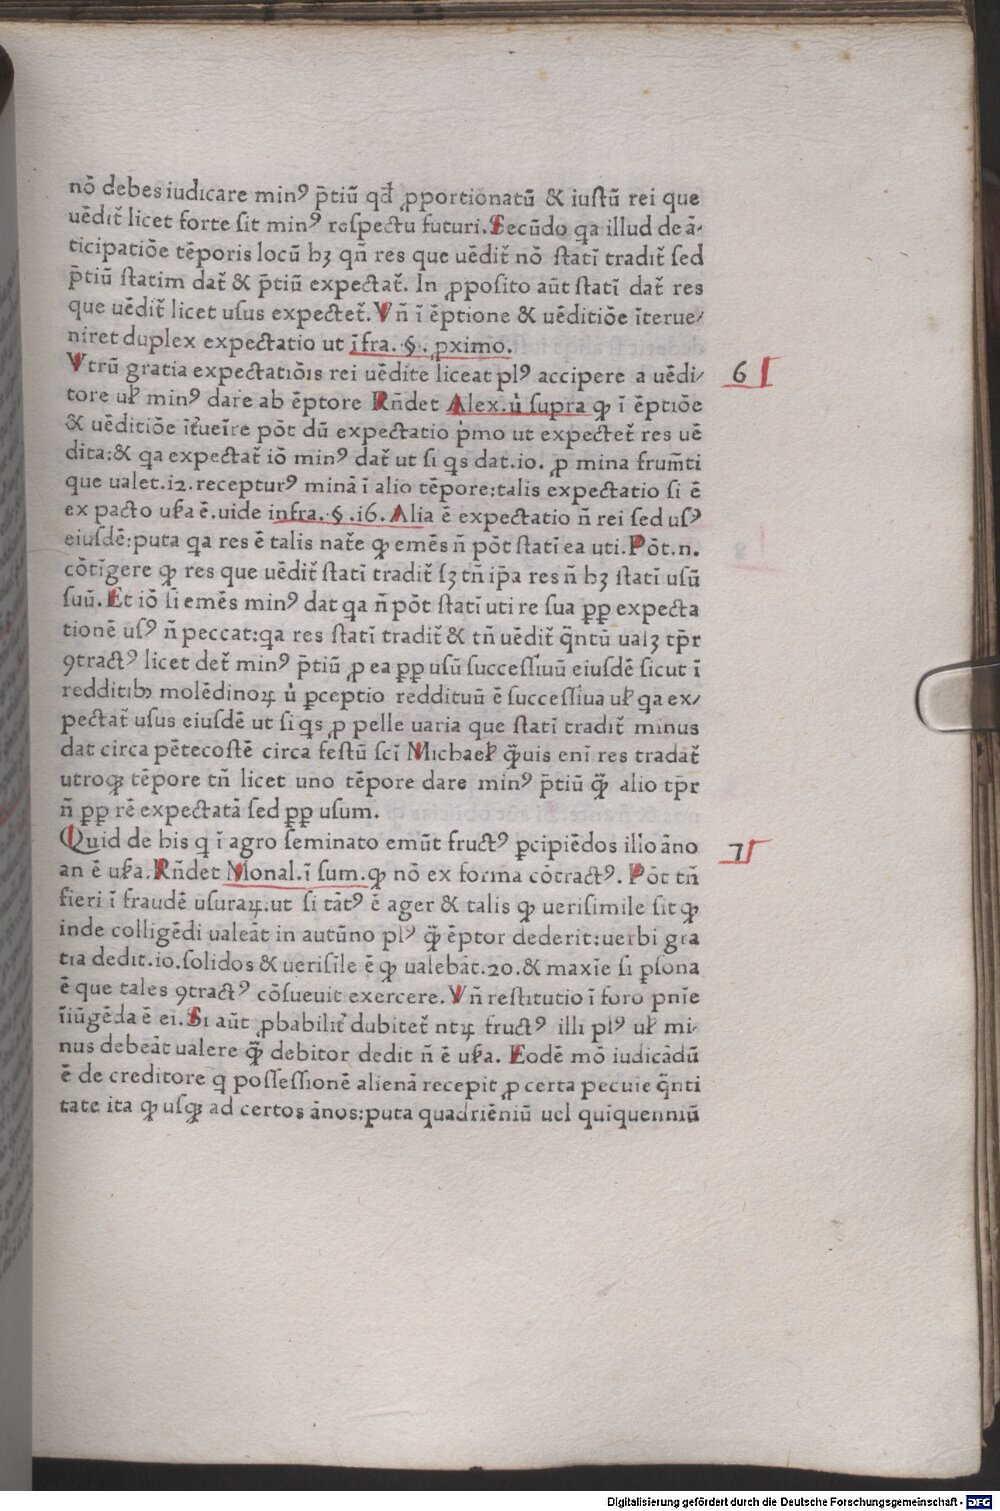 nō debes iudicare minꝰ p̄tiū qd̛ ꝓportionatū & iustū rei que
uēdit̄ licet forte sit minꝰ respectu futuri. Secūdo qa illud de ā-
ticipatiōe tēporis locū hꝫ qn̄ res que uēdit̄ nō statī tradit̄ sed
p̄tiū statim dat̄ & p̄tiū expectat̄. In ꝓposito aūt statī dat̄ res
que uēdit̄ licet usus expectet̄. Vn̄ ī ēptione & uēditiōe īterue/
niret duplex expectatio ut īfra. §. ꝓximo.
Vtrū gratia expectatiōis rei uēdite liceat plꝰ accipere a uēdi/ 6
tore uł minꝰ dare ab ēptore Rn̄det Alex. u̇ supra ꝙ ī ēptiōe
& uēditiōe īt̄ueīre pōt dū expectatio p̍mo ut expectet̄ res uē
dita: & qa expectat̄ iō minꝰ dat̄ ut si qs dat. io. ꝓ mina frum̄ti
que ualet. i2. recepturꝰ minā ī alio tēpore: talis expectatio si ē
ex pacto uẜa ē. uide infra. §. i6. Alia ē expectatio n̄ rei sed usꝰ
eiusdē: puta qa res ē talis nat̄e ꝙ emēs n̄ pōt statī ea uti. Pōt. n.
cōtīgere ꝙ res que uēdit̄ statī tradit̄ sꝫ tn̄ ip̄a res n̄ hꝫ statī usū
suū. Et iō si emēs minꝰ dat qa n̄ pōt statī uti re sua ꝓꝑ expecta
tionē usꝰ n̄ peccat: qa res statī tradit̄ & tn̄ uēdit̄ q̄ntū ualꝫ tp̄r
ꝯtractꝰ licet det̄ minꝰ p̄tiū ꝓ ea ꝓꝑ usū successiuū eiusdē sicut ī
redditibꝫ molēdinoꝝ u̇ ꝑceptio reddituū ē successiua uł qa ex/
pectat̄ usus eiusdē ut si qs ꝓ pelle uaria que statī tradit̄ minus
dat circa pētecostē circa festū scī Michael̛ q̄̃uis enī res tradat̄
utroqꝫ tēpore tn̄ licet uno tēpore dare minꝰ p̄tiū ꝙ̄ alio tp̄r
n̄ ꝓꝑ rē expectatā sed ꝓꝑ usum.
Quid de his q ī agro seminato emūt fructꝰ ꝑcipiēdos illo āno 7
an ē uẜa. Rn̄det Monal. ī sum. ꝙ nō ex forma cōtractꝰ. Pōt tn̄
fieri ī fraudē usuraꝝ. ut si tātꝰ ē ager & talis ꝙ uerisimile sit ꝙ
inde colligēdi ualeāt in autūno plꝰ ꝙ̄ ēptor dederit: uerbi gra
tia dedit. io. solidos & uerisīle ē ꝙ ualebāt. 20. & maxīe si ꝑsona
ē que tales ꝯtractꝰ cōsueuit exercere. Vn̄ restitutio ī foro pnīe
īiūgēda ē ei. Si aūt ꝓbabilit̄ dubitet̄ ntꝝ fructꝰ illi plꝰ uł mi-
nus debeāt ualere ꝙ̄ debitor dedit n̄ ē uẜa. Eodē mō iudicādū
ē de creditore q possessionē alienā recepit ꝓ certa pecuie q̄nti
tate ita ꝙ usqꝫ ad certos ānos: puta quadriēniū uel quīquenniū
Digitalisierung gefördert durch die Deutsche Forschungsgemeinschaft - DFG